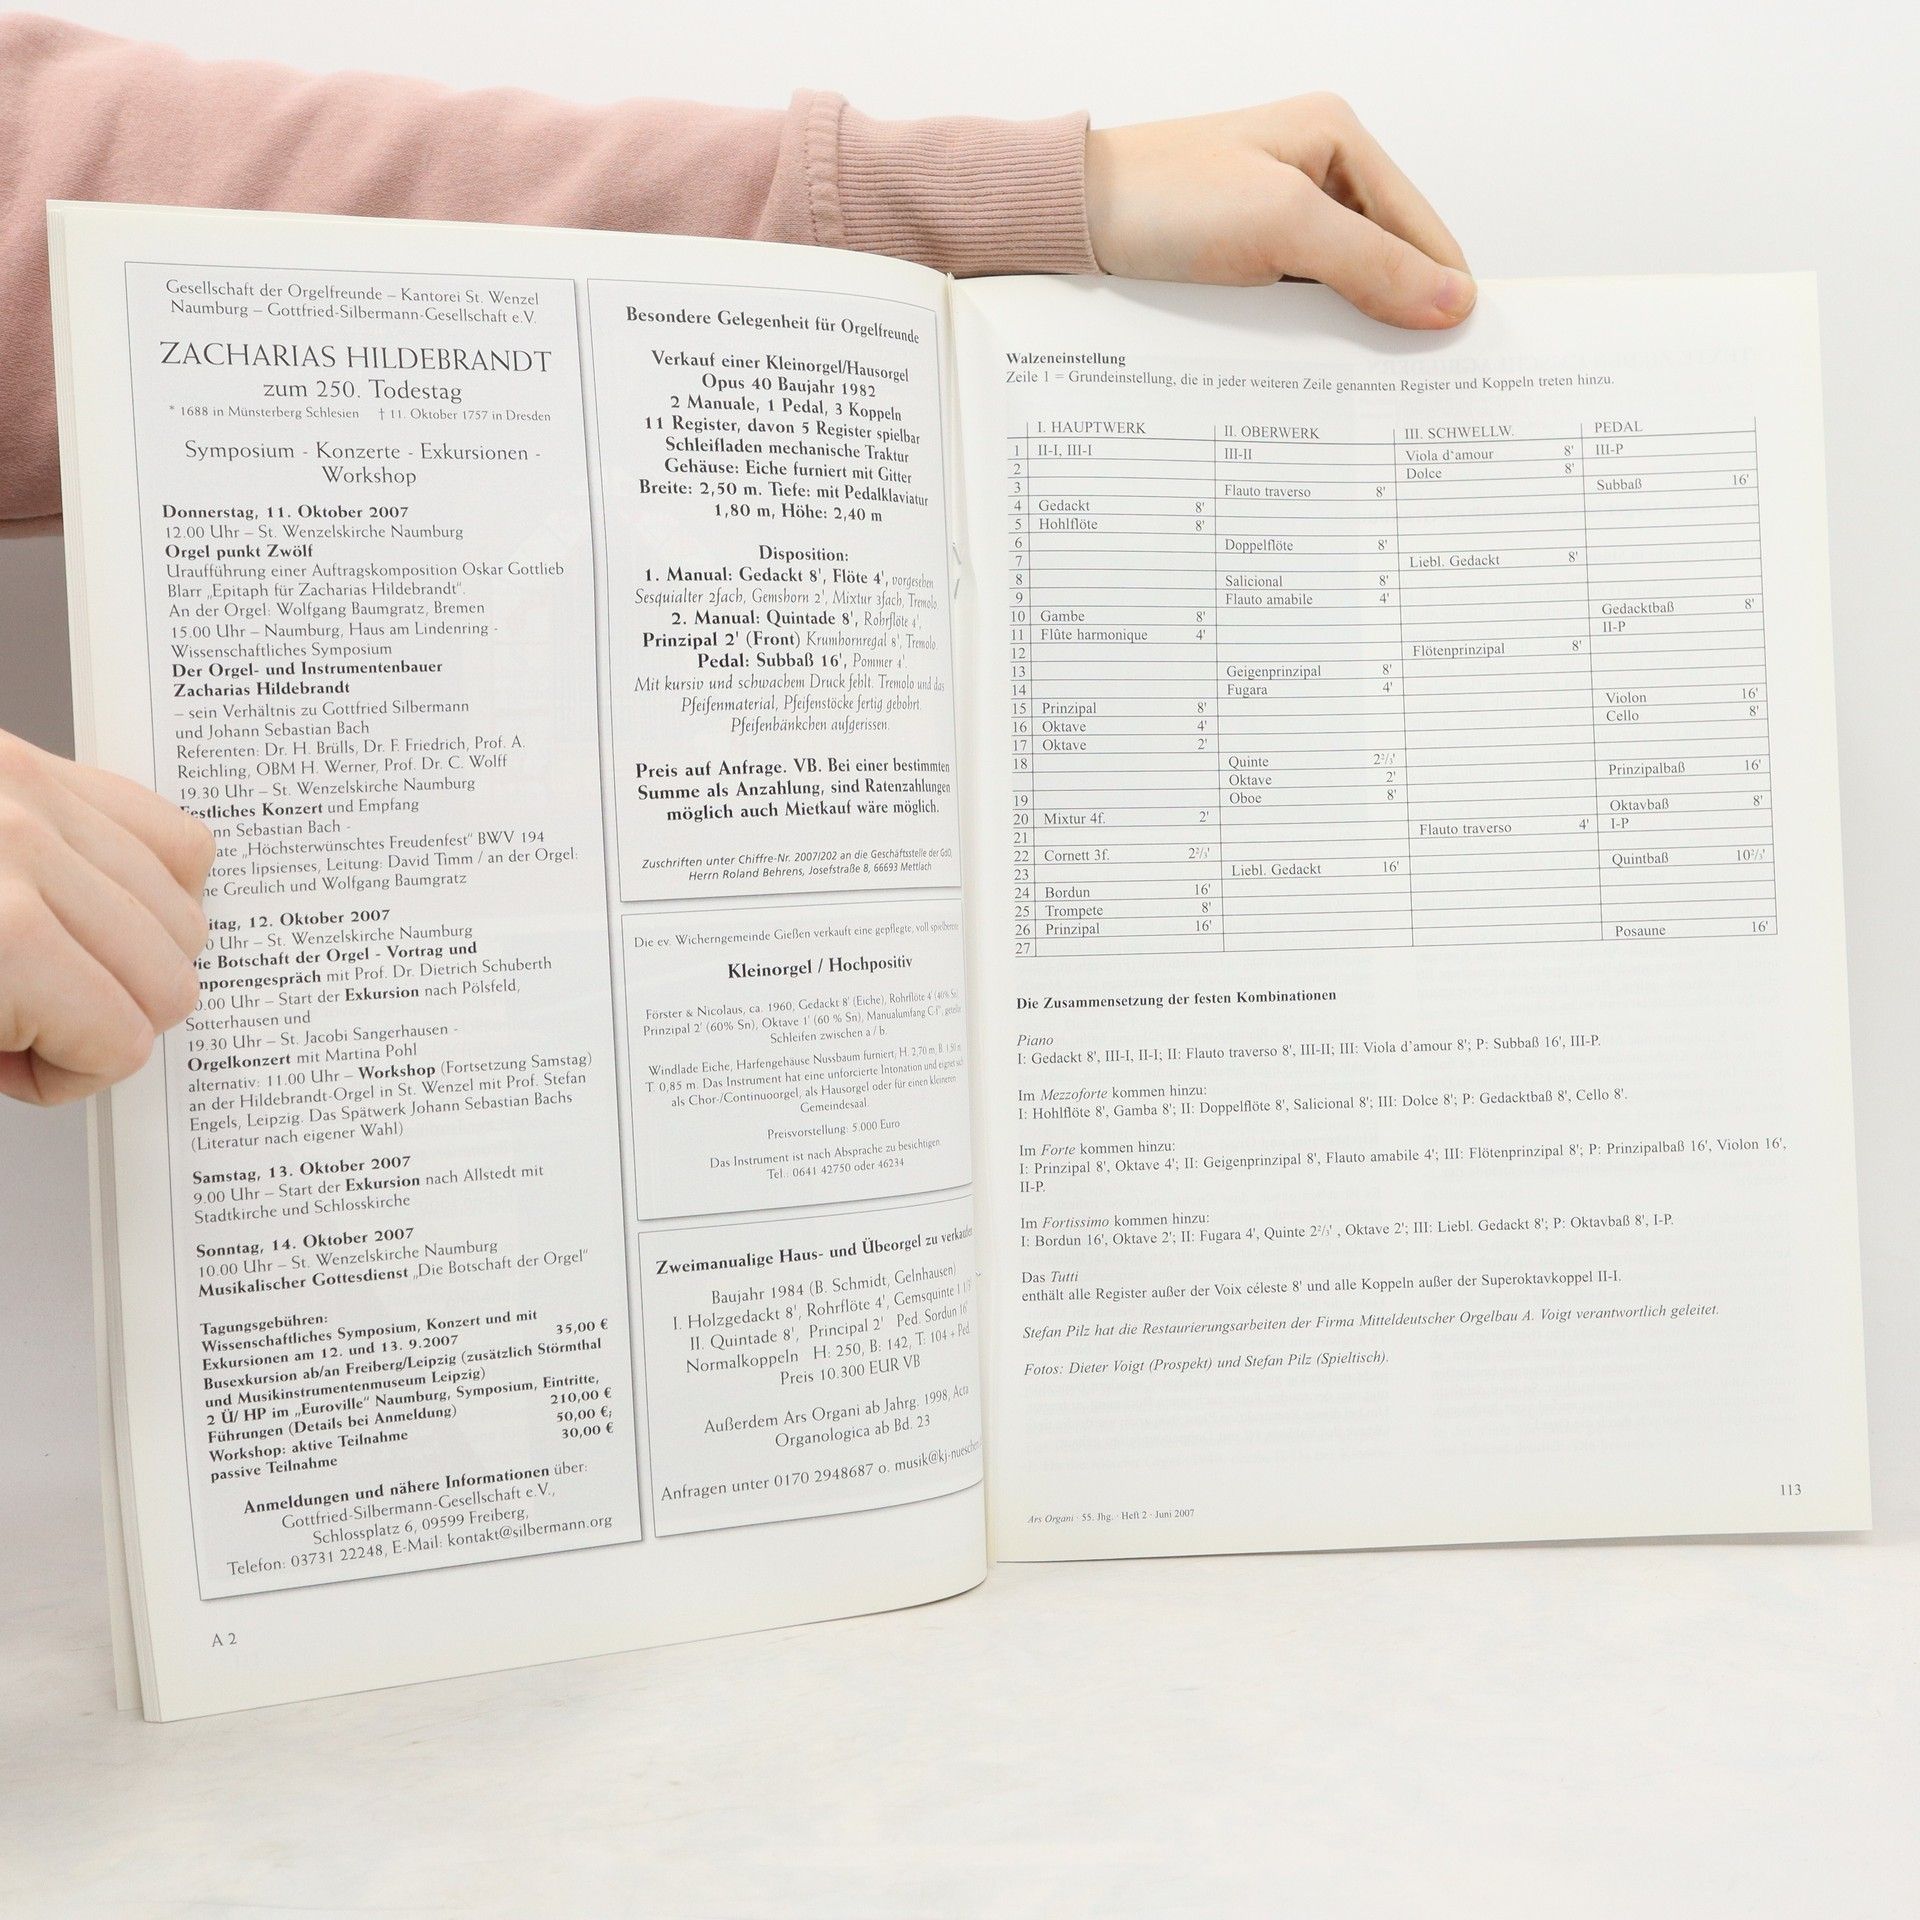 Gesellschaft der Orgelfreunde – Kantorei St. Wenzel
Naumburg – Gottfried-Silbermann-Gesellschaft e.V.
ZACHARIAS HILDEBRANDT
zum 250. Todestag
* 1688 in Münsterberg Schlesien † 11. Oktober 1757 in Dresden
Symposium - Konzerte - Exkursionen -
Workshop
Donnerstag, 11. Oktober 2007
12.00 Uhr – St. Wenzelskirche Naumburg
Orgel punkt Zwölf
Uraufführung einer Auftragskomposition Oskar Gottlieb
Blarr „Epitaph für Zacharias Hildebrandt“.
An der Orgel: Wolfgang Baumgratz, Bremen
15.00 Uhr – Naumburg, Haus am Lindenring -
Wissenschaftliches Symposium
Der Orgel- und Instrumentenbauer
Zacharias Hildebrandt
– sein Verhältnis zu Gottfried Silbermann
und Johann Sebastian Bach
Referenten: Dr. H. Brülls, Dr. F. Friedrich, Prof. A.
Reichling, OBM H. Werner, Prof. Dr. C. Wolff
19.30 Uhr – St. Wenzelskirche Naumburg
Festliches Konzert und Empfang
nn Sebastian Bach -
ate „Höchsterwünschtes Freudenfest“ BWV 194
tores lipsienses, Leitung: David Timm / an der Orgel:
ne Greulich und Wolfgang Baumgratz
itag, 12. Oktober 2007
0 Uhr – St. Wenzelskirche Naumburg
ie Botschaft der Orgel - Vortrag und
mporengespräch mit Prof. Dr. Dietrich Schuberth
0.00 Uhr – Start der Exkursion nach Pölsfeld,
Sotterhausen und
19.30 Uhr – St. Jacobi Sangerhausen -
Orgelkonzert mit Martina Pohl
alternativ: 11.00 Uhr – Workshop (Fortsetzung Samstag)
an der Hildebrandt-Orgel in St. Wenzel mit Prof. Stefan
Engels, Leipzig. Das Spätwerk Johann Sebastian Bachs
(Literatur nach eigener Wahl)
Samstag, 13. Oktober 2007
9.00 Uhr – Start der Exkursion nach Allstedt mit
Stadtkirche und Schlosskirche
Sonntag, 14. Oktober 2007
10.00 Uhr – St. Wenzelskirche Naumburg
Musikalischer Gottesdienst „Die Botschaft der Orgel“
Tagungsgebühren:
Wissenschaftliches Symposium, Konzert und mit
Exkursionen am 12. und 13. 9.2007 35,00 €
Busexkursion ab/an Freiberg/Leipzig (zusätzlich Störmthal
und Musikinstrumentenmuseum Leipzig)
2 Ü/ HP im „Euroville“ Naumburg, Symposium, Eintritte,
Führungen (Details bei Anmeldung) 210,00 €
Workshop: aktive Teilnahme 50,00 €;
passive Teilnahme 30,00 €
Anmeldungen und nähere Informationen über:
Gottfried-Silbermann-Gesellschaft e.V.,
Schlossplatz 6, 09599 Freiberg,
Telefon: 03731 22248, E-Mail: kontakt@silbermann.org
A 2
Besondere Gelegenheit für Orgelfreunde
Verkauf einer Kleinorgel/Hausorgel
Opus 40 Baujahr 1982
2 Manuale, 1 Pedal, 3 Koppeln
11 Register, davon 5 Register spielbar
Schleifladen mechanische Traktur
Gehäuse: Eiche furniert mit Gitter
Breite: 2,50 m. Tiefe: mit Pedalklaviatur
1,80 m, Höhe: 2,40 m
Disposition:
1. Manual: Gedackt 8', Flöte 4', vorgesehen
Sesquialter 2fach, Gemshorn 2', Mixtur 3fach, Tremolo
2. Manual: Quintade 8', Rohrflöte 4',
Prinzipal 2' (Front) Krumhornregal 8', Tremolo
Pedal: Subbaß 16', Pommer 4'.
Mit kursiv und schwachem Druck fehlt. Tremolo und das
Pfeifenmaterial, Pfeifenstöcke fertig gebohrt.
Pfeifenbänkchen aufgerissen.
Preis auf Anfrage. VB. Bei einer bestimmten
Summe als Anzahlung, sind Ratenzahlungen
möglich auch Mietkauf wäre möglich.
Zuschriften unter Chiffre-Nr. 2007/202 an die Geschäftsstelle der GdO,
Herrn Roland Behrens, Josefstraße 8, 66693 Mettlach
Die ev. Wicherngemeinde Gießen verkauft eine gepflegte, voll spielbereite
Kleinorgel / Hochpositiv
Förster & Nicolaus, ca. 1960, Gedackt 8' (Eiche), Rohrflöte 4' (40% Sn)
Prinzipal 2' (60% Sn), Oktave 1' (60 % Sn), Manualumfang C-f''', geteilte
Schleifen zwischen a / b.
Windlade Eiche, Harfengehäuse Nussbaum furniert; H. 2,70 m, B. 1,50 m,
T. 0,85 m. Das Instrument hat eine unforcierte Intonation und eignet sich
als Chor-/Continuoorgel, als Hausorgel oder für einen kleineren
Gemeindesaal.
Preisvorstellung: 5.000 Euro
Das Instrument ist nach Absprache zu besichtigen.
Tel.: 0641 42750 oder 46234
Zweimanualige Haus- und Übeorgel zu verkaufen
Baujahr 1984 (B. Schmidt, Gelnhausen)
I. Holzgedackt 8', Rohrflöte 4', Gemsquinte 1 1/3'
II. Quintade 8', Principal 2' Ped. Sordun 16'
Normalkoppeln H: 250, B: 142, T: 104 + Ped.
Preis 10.300 EUR VB
Außerdem Ars Organi ab Jahrg. 1998, Acta
Organologica ab Bd. 23
Anfragen unter 0170 2948687 o. musik@kj-nueschen.
Walzeneinstellung
Zeile 1 = Grundeinstellung, die in jeder weiteren Zeile genannten Register und Koppeln treten hinzu.
I. HAUPTWERK II. OBERWERK III. SCHWELLW. PEDAL
1 II-I, III-I III-II Viola d‘amour 8' III-P
2 Dolce 8'
3 Flauto traverso 8' Subbaß 16'
4 Gedackt 8'
5 Hohlflöte 8'
6 Doppelflöte 8'
7 Liebl. Gedackt 8'
8 Salicional 8'
9 Flauto amabile 4'
10 Gambe 8' Gedacktbaß 8'
11 Flûte harmonique 4' II-P
12 Flötenprinzipal 8'
13 Geigenprinzipal 8'
14 Fugara 4'
15 Prinzipal 8' Violon 16'
16 Oktave 4' Cello 8'
17 Oktave 2'
18 Quinte 2²/₃' Prinzipalbaß 16'
Oktave 2'
19 Oboe 8' Oktavbaß 8'
20 Mixtur 4f. 2' I-P
21 Flauto traverso 4'
22 Cornett 3f. 2²/₃' Quintbaß 10²/₃'
23 Liebl. Gedackt 16'
24 Bordun 16'
25 Trompete 8'
26 Prinzipal 16' Posaune 16'
27
Die Zusammensetzung der festen Kombinationen
Piano
I: Gedackt 8', III-I, II-I; II: Flauto traverso 8', III-II; III: Viola d’amour 8'; P: Subbaß 16', III-P.
Im Mezzoforte kommen hinzu:
I: Hohlflöte 8', Gamba 8'; II: Doppelflöte 8', Salicional 8'; III: Dolce 8'; P: Gedacktbaß 8', Cello 8'.
Im Forte kommen hinzu:
I: Prinzipal 8', Oktave 4'; II: Geigenprinzipal 8', Flauto amabile 4'; III: Flötenprinzipal 8'; P: Prinzipalbaß 16', Violon 16',
II-P.
Im Fortissimo kommen hinzu:
I: Bordun 16', Oktave 2'; II: Fugara 4', Quinte 2²/₃' , Oktave 2'; III: Liebl. Gedackt 8'; P: Oktavbaß 8', I-P.
Das Tutti
enthält alle Register außer der Voix céleste 8' und alle Koppeln außer der Superoktavkoppel II-I.
Stefan Pilz hat die Restaurierungsarbeiten der Firma Mitteldeutscher Orgelbau A. Voigt verantwortlich geleitet.
Fotos: Dieter Voigt (Prospekt) und Stefan Pilz (Spieltisch).
113
Ars Organi · 55. Jhg. · Heft 2 · Juni 2007